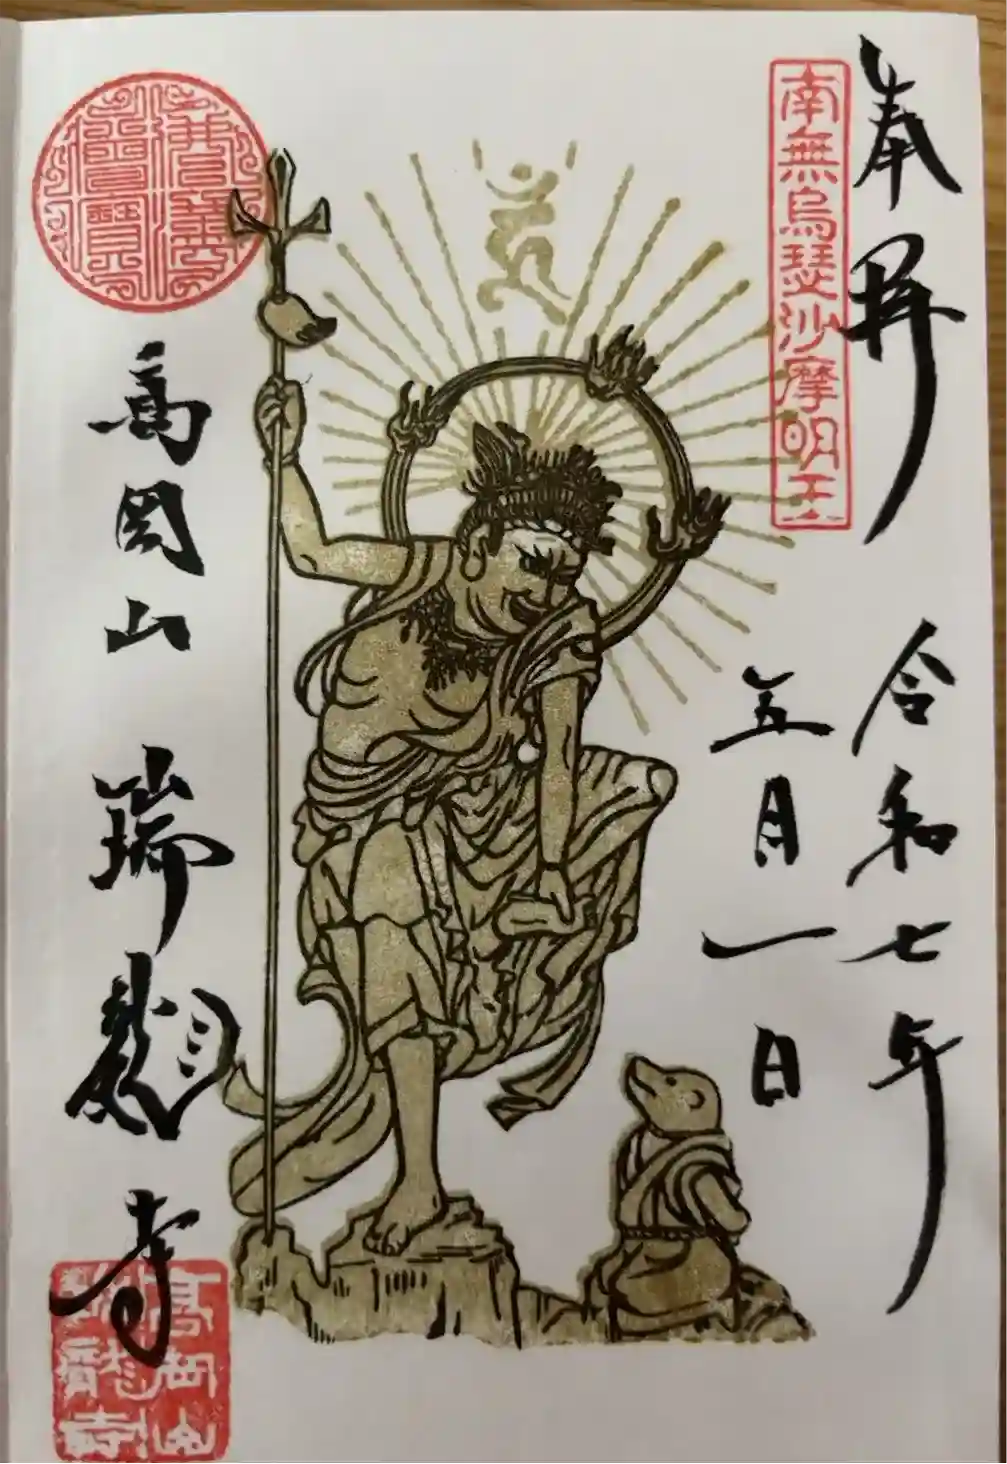 奉拝
南無烏瑟沙摩明王
令和七年
五月一日
佛法僧寶
高岡山 瑞龍寺
高岡山
瑞龍寺